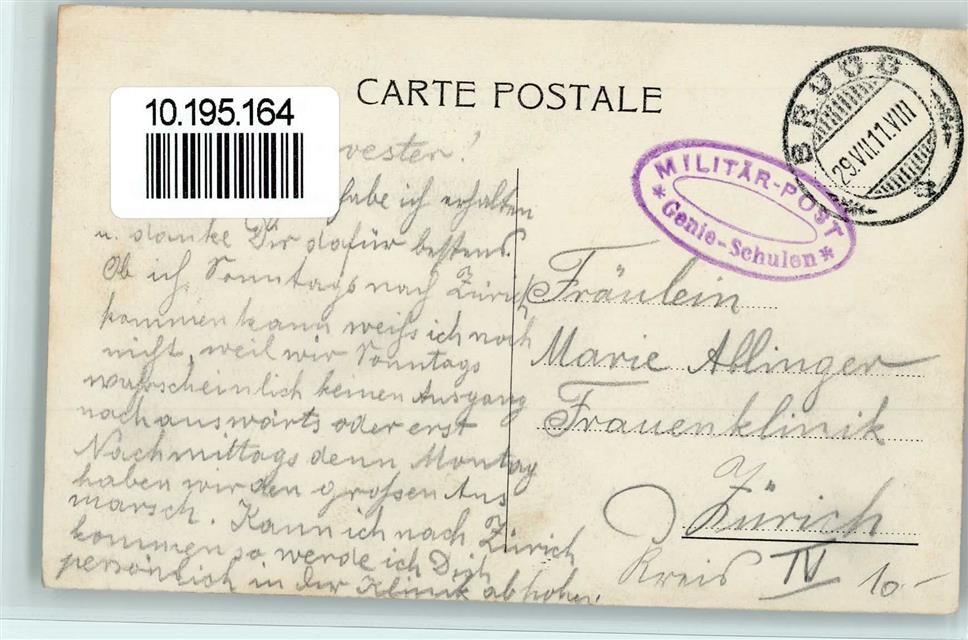 CARTE POSTALE
10.195.164
BRUGG
29.VII.11.VIII
MILITÄR-POST
* Genie-Schulen *
vester!
habe ich erhalten
u. danke Dir dafür bestens.
Ob ich Sonntags nach Zürich
kommen kann weiss ich noch
nicht, weil wir Sonntags
wahrscheinlich keinen Ausgang
nach auswärts oder erst
Nachmittags denn Montag
haben wir den grossen Aus
marsch. Kann ich nach Zürich
kommen so werde ich Dich
persönlich in der Klinik abholen.
Fräulein
Marie Allinger
Frauenklinik
Zürich
Kreis IV
10-